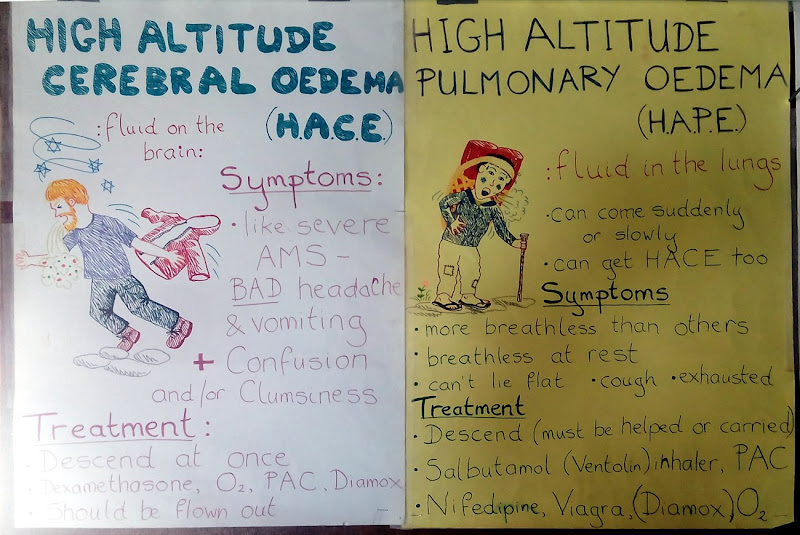 HIGH ALTITUDE
CEREBRAL OEDEMA
(H.A.C.E.)
:fluid on the
brain:
Symptoms:
• like severe
AMS –
BAD headache
& vomiting
+ Confusion
and/or Clumsiness
Treatment:
• Descend at once
• Dexamethasone, O₂, PAC, Diamox
• Should be flown out
HIGH ALTITUDE
PULMONARY OEDEMA
(H.A.P.E.)
:fluid in the lungs
• can come suddenly
or slowly
• can get HACE too
Symptoms
• more breathless than others
• breathless at rest
• can't lie flat • cough • exhausted
Treatment
• Descend (must be helped or carried)
• Salbutamol (Ventolin) inhaler, PAC
• Nifedipine, Viagra, (Diamox) O₂